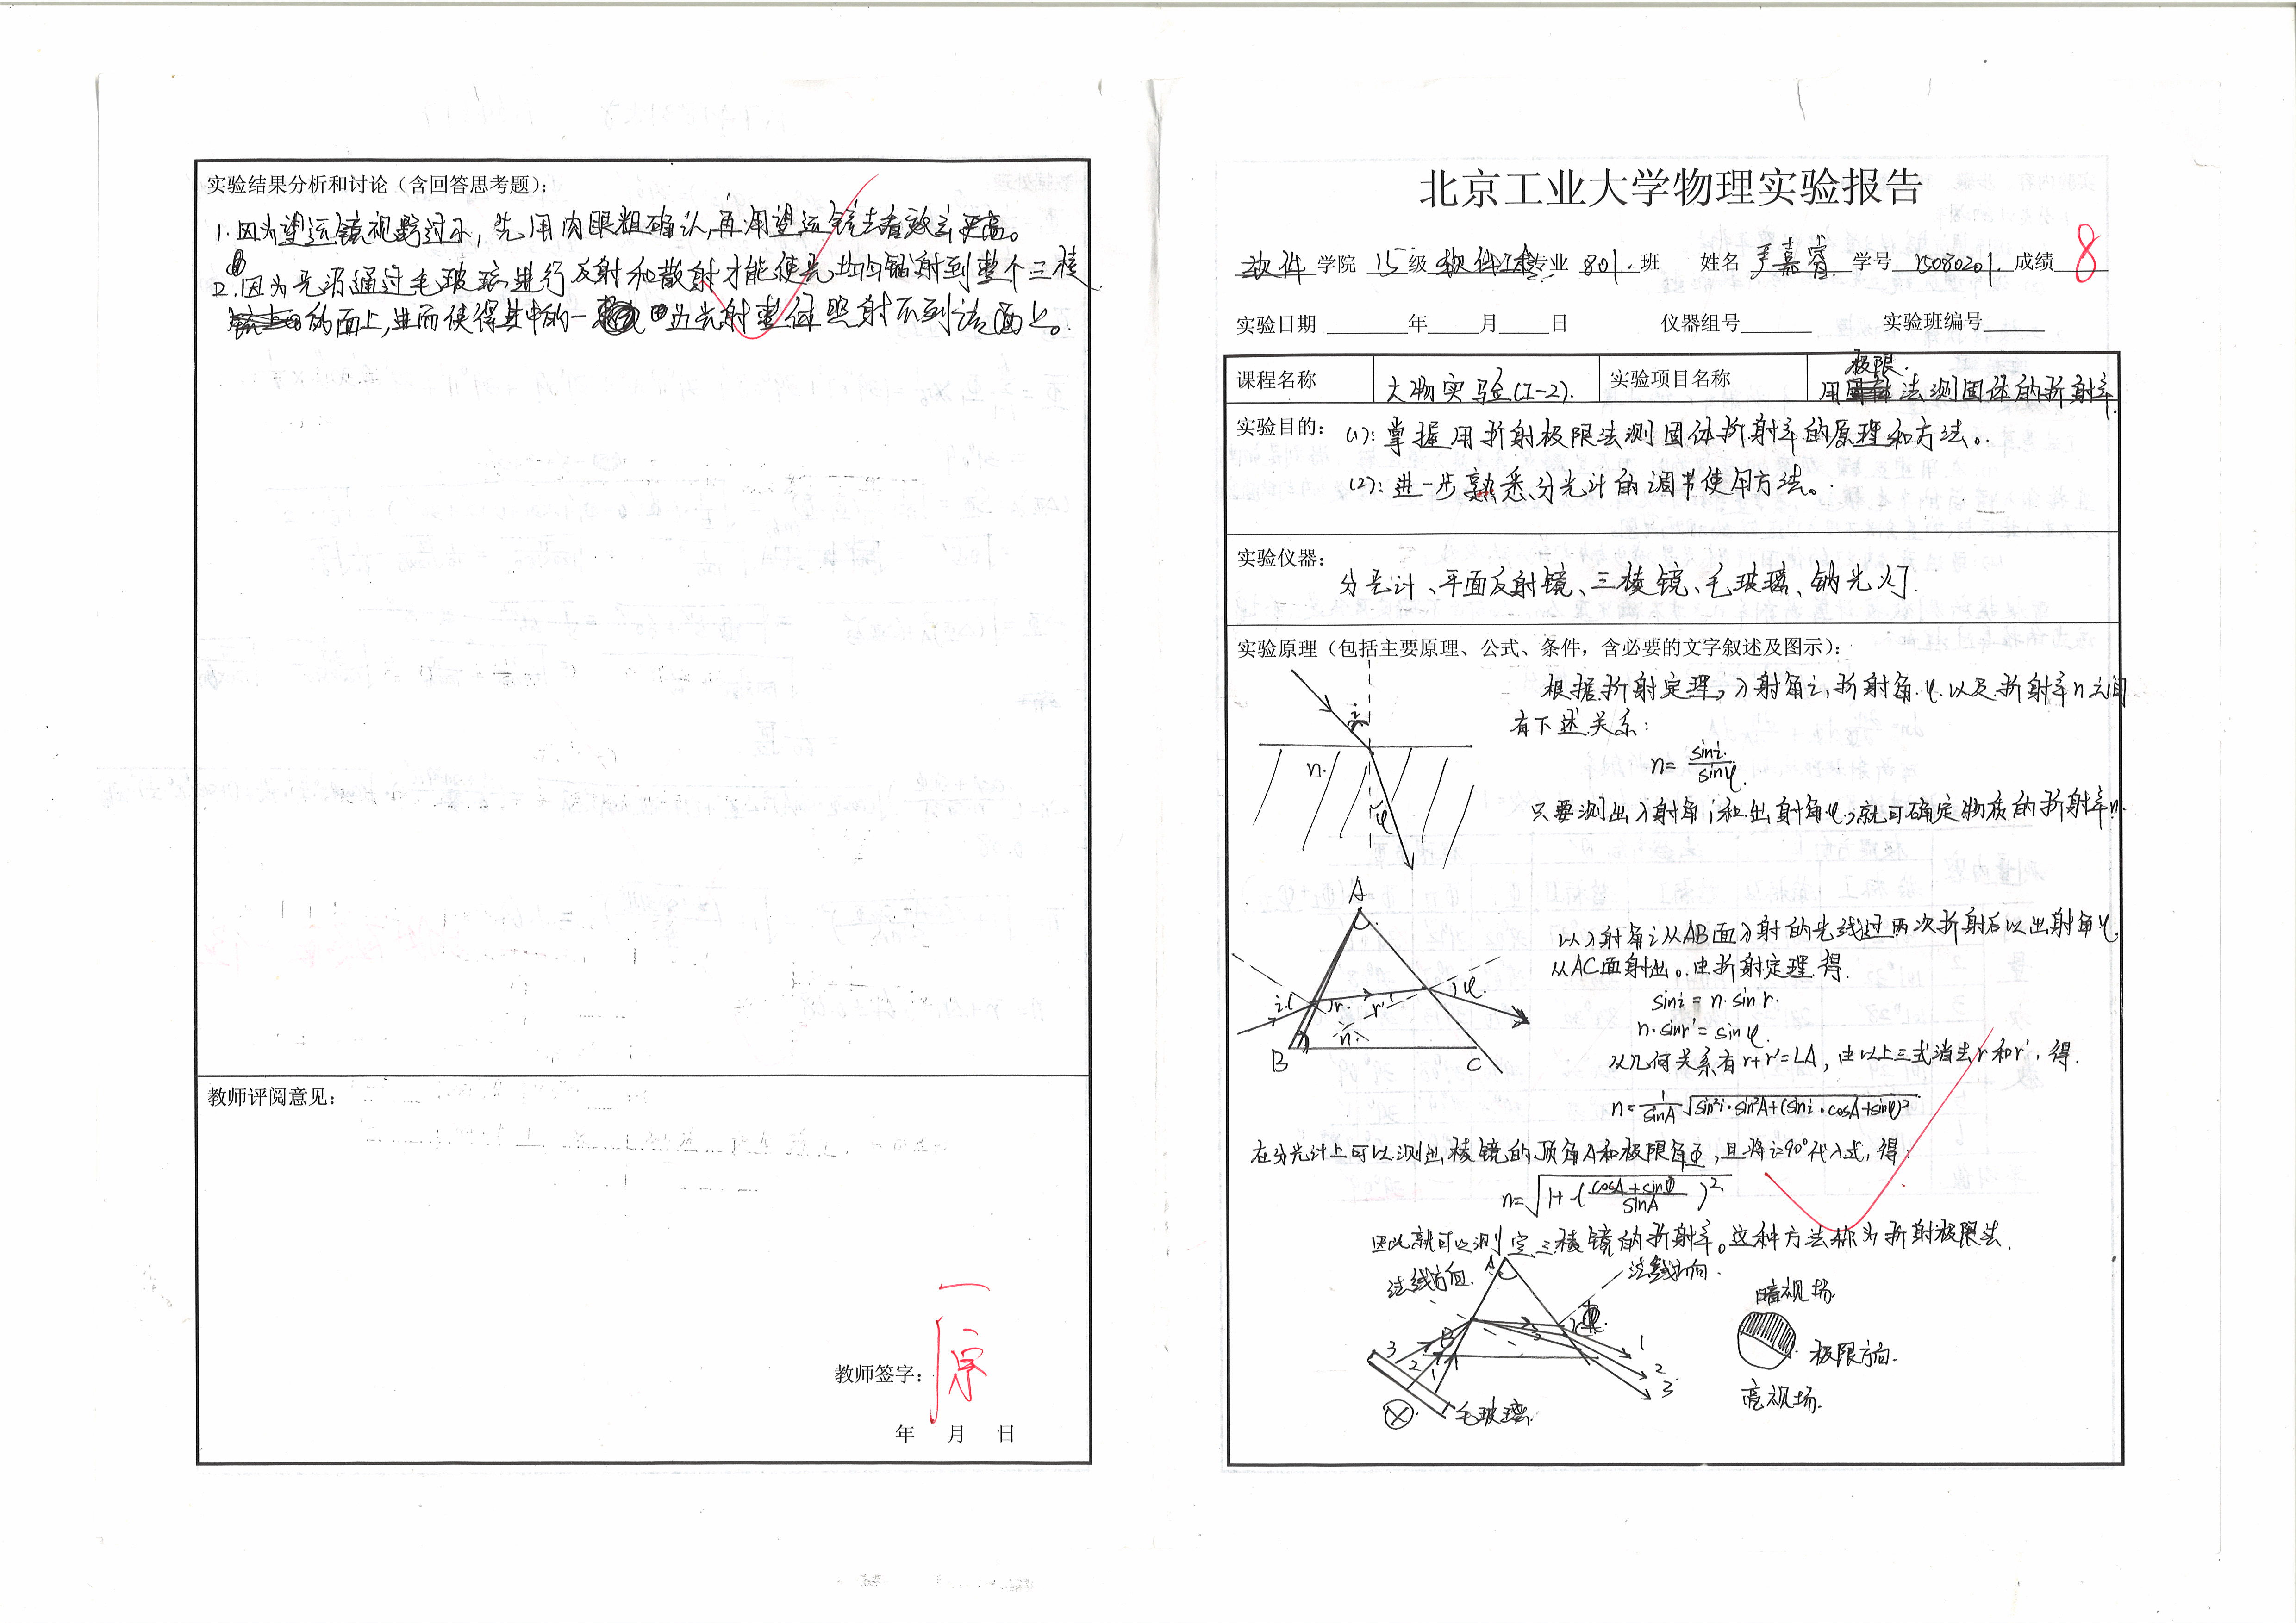 实验结果分析和讨论（含回答思考题）：
1.因为望远镜视野过小，先用肉眼粗确认，再用望远镜去看效率更高。
2.因为光源通过毛玻璃进行反射和散射才能使光均匀辐射到整个三棱
的面上，进而使得其中的一
照射不到该面上。
教师评阅意见：
教师签字：
年 月 日
北京工业大学物理实验报告
软件 学院 15 级 软件工程 专业 801. 班 姓名 严嘉睿 学号 15080201. 成绩 8
实验日期 年 月 日 仪器组号 实验班编号
课程名称 大物实验(I-2). 实验项目名称 用极限法测固体的折射率.
实验目的： (1)：掌握用折射极限法测固体折射率的原理和方法。
(2)：进一步熟悉分光计的调节使用方法。
实验仪器：
分光计、平面反射镜、三棱镜、毛玻璃、钠光灯.
实验原理（包括主要原理、公式、条件，含必要的文字叙述及图示）：
根据折射定理，入射角i，折射角φ以及折射率n之间
有下述关系：
n= sini/sinφ.
只要测出入射角i和出射角φ，就可确定物质的折射率n.
i
n.
φ
A
以入射角i从AB面入射的光线过两次折射后以出射角φ
从AC面射出。由折射定理得.
sini = n·sin r.
n·sinr'=sinφ.
从几何关系有r+r'=∠A，由以上三式消去r和r'，得.
n= 1/sinA √sin²i·sin²A+(sini·cosA+sinφ)²
i r. r' φ.
n.
B C
在分光计上可以测出棱镜的顶角A和极限角Φ，且将i=90°代入式，得：
n=√1+(cosA+sinφ/sinA)².
因此就可以测定三棱镜的折射率。这种方法称为折射极限法.
法线方向. A 法线方向.
暗视场.
极限方向.
亮视场.
B
3 2 1
1
2
3
毛玻璃